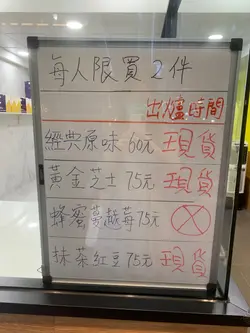 每人限買2件
出爐時間
經典原味 60元 現貨
黃金芝士 75元 現貨
蜂蜜蔓越莓 75元
抹茶紅豆 75元 現貨